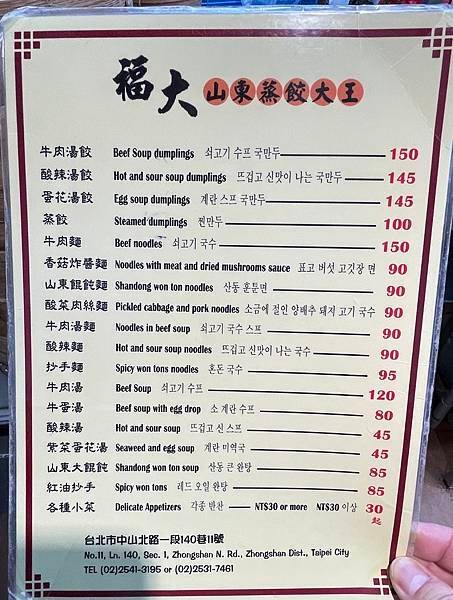 福大 山東蒸餃大王
牛肉湯餃 Beef Soup dumplings 쇠고기 수프 국만두 150
酸辣湯餃 Hot and sour soup dumplings 뜨겁고 신맛이 나는 국만두 145
蛋花湯餃 Egg soup dumplings 계란 스프 국만두 145
蒸餃 Steamed dumplings 찐만두 100
牛肉麵 Beef noodles 쇠고기 국수 150
香菇炸醬麵 Noodles with meat and dried mushrooms sauce 표고 버섯 고깃장 면 90
山東餛飩麵 Shandong won ton noodles 산동 훈툰면 90
酸菜肉絲麵 Pickled cabbage and pork noodles 소금에 절인 양배추 돼지 고기 국수 90
牛肉湯麵 Noodles in beef soup 쇠고기 국수 스프 90
酸辣麵 Hot and sour soup noodles 뜨겁고 신맛이 나는 국수 90
抄手麵 Spicy won tons noodles 혼돈 국수 95
牛肉湯 Beef Soup 쇠고기 수프 120
牛蛋湯 Beef soup with egg drop 소 계란 수프 80
酸辣湯 Hot and sour soup 뜨겁고 신 스프 45
紫菜蛋花湯 Seaweed and egg soup 계란 미역국 45
山東大餛飩 Shandong won ton soup 산동 큰 완탕 85
紅油抄手 Spicy won tons 레드 오일 완탕 85
各種小菜 Delicate Appetizers 각종 반찬 NT$30 or more NT$30 이상 30起
台北市中山北路一段140巷11號
No.11, Ln. 140, Sec. 1, Zhongshan N. Rd., Zhongshan Dist., Taipei City
TEL (02)2541-3195 or (02)2531-7461